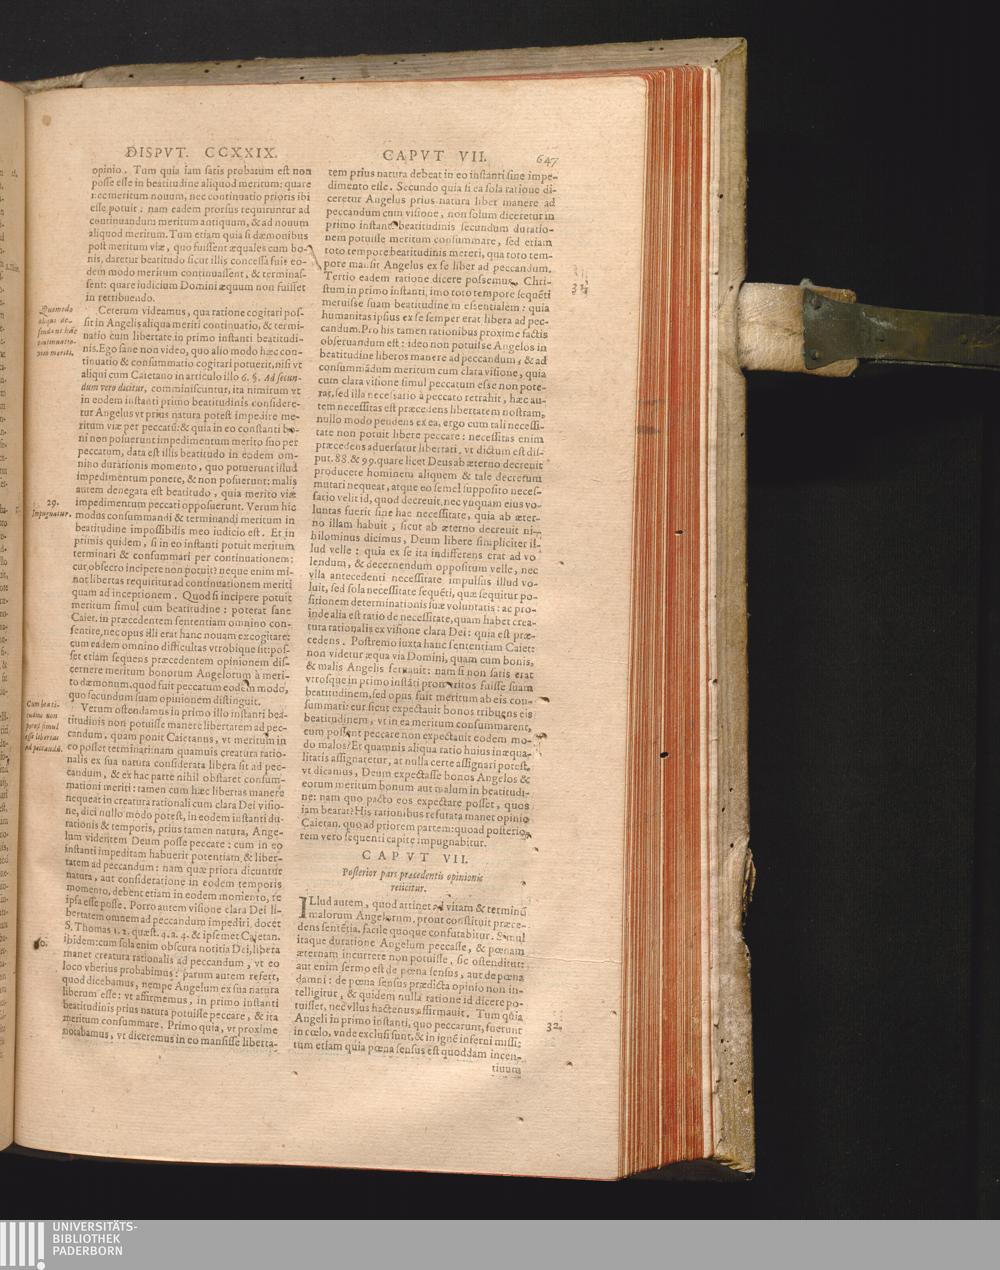 DISPVT. CCXXIX.
opinio. Tum quia iam satis probatum est non
posse esse in beatitudine aliquod meritum: quare
nec meritum nouum, nec continuatio prioris ibi
esse potuit: nam eadem prorsus requiruntur ad
continuandum meritum antiquum, & ad nouum
aliquod meritum. Tum etiam quia si dæmonibus
post meritum viæ, quo fuissent æquales cum bo-
nis, daretur beatitudo sicut illis concessa fuit eo-
dem modo meritum continuassent, & terminas-
sent: quare iudicium Domini æquum non fuisset
in retribuendo.
Quomodo
aliqui de-
fendant hāc
continuatio-
nem meriti.
Ceterum videamus, qua ratione cogitari pos-
sit in Angelis aliqua meriti continuatio, & termi-
natio cum libertate in primo instanti beatitudi-
nis. Ego sane non video, quo alio modo hæc con-
tinuatio & consummatio cogitari potuerit, nisi vt
aliqui cum Caietano in articulo illo 6. §. Ad secun-
dum vero dicitur, comminiscuntur, ita nimirum vt
in eodem instanti primo beatitudinis considere-
tur Angelus vt prius natura potest impedire me-
ritum viæ per peccatū: & quia in eo constanti bo-
ni non posuerunt impedimentum merito suo per
peccatum, data est illis beatitudo in eodem om-
nino durationis momento, quo potuerunt istud
impedimentum ponere, & non posuerunt: malis
autem denegata est beatitudo, quia merito viæ
29.
Impugnatur.
impedimentum peccati opposuerunt. Verum hic
modus consummandi & terminandi meritum in
beatitudine impossibilis meo iudicio est. Et in
primis quidem, si in eo instanti potuit meritum
terminari & consummari per continuationem:
cur obsecro incipere non potuit? neque enim mi-
nor libertas requiritur ad continuationem meriti
quam ad inceptionem. Quod si incipere potuit
meritum simul cum beatitudine: poterat sane
Caiet. in præcedentem sententiam omnino con-
sentire, nec opus illi erat hanc nouam excogitare:
cum eadem omnino difficultas vtrobique sit: pos-
set etiam sequens præcedentem opinionem dis-
cernere meritum bonorum Angelorum à meri-
to dæmonum. quod fuit peccatum eodem modo,
quo secundum suam opinionem distinguit.
Cum beati-
tudine non
potest simul
esse libertas
ad peccandū.
Verum ostendamus in primo illo instanti bea-
titudinis non potuisse manere libertatem ad pec-
candum, quam ponit Caietanus, vt meritum in
eo posset terminari: nam quamuis creatura ratio-
nalis ex sua natura considerata libera sit ad pec-
candum, & ex hac parte nihil obstaret consum-
mationi meriti: tamen cum hæc libertas manere
nequeat in creatura rationali cum clara Dei visio-
ne, dici nullo modo potest, in eodem instanti du-
rationis & temporis, prius tamen natura, Ange-
lum videntem Deum posse peccare: cum in eo
instanti impeditam habuerit potentiam & liber-
tatem ad peccandum: nam quæ priora dicuntur
natura, aut consideratione in eodem temporis
momento, debent etiam in eodem momento, re
ipsa esse posse. Porro autem visione clara Dei li-
bertatem omnem ad peccandum impediri, docet
S. Thomas 1. 2. quæst. 4. a. 4. & ipsemet Caietan.
ibidem: cum sola enim obscura notitia Dei, libera
manet creatura rationalis ad peccandum, vt eo
loco vberius probabimus: parum autem refert,
quod dicebamus, nempe Angelum ex sua natura
liberum esse: vt affirmemus, in primo instanti
beatitudinis prius natura potuisse peccare, & ita
meritum consummare. Primo quia, vt proxime
notabamus, vt diceremus in eo mansisse liberta-
CAPVT VII.
647
tem prius natura debeat in eo instanti sine impe-
dimento esse. Secundo quia si ea sola ratione di-
ceretur Angelus prius natura liber manere ad
peccandum cum visione, non solum diceretur in
primo instanti beatitudinis secundum duratio-
nem potuisse meritum consummare, sed etiam
toto tempore beatitudinis mereri, qua toto tem-
pore mansit Angelus ex se liber ad peccandum.
Tertio eadem ratione dicere possemus, Chri-
stum in primo instanti, imo toto tempore sequēti
meruisse suam beatitudinem essentialem: quia
humanitas ipsius ex se semper erat libera ad pec-
candum. Pro his tamen rationibus proxime factis
obseruandum est: ideo non potuisse Angelos in
beatitudine liberos manere ad peccandum, & ad
consummādum meritum cum clara visione, quia
cum clara visione simul peccatum esse non pote-
rat, sed illa necessario à peccato retrahit, hæc au-
tem necessitas est præcedens libertatem nostram,
nullo modo pendens ex ea, ergo cum tali necessi-
tate non potuit libere peccare: necessitas enim
præcedens aduersatur libertati, vt dictum est dis-
put. 88. & 99. quare licet Deus ab æterno decreuit
producere hominem aliquem & tale decretum
mutari nequeat, atque eo semel supposito neces-
sario velit id, quod decreuit, nec vnquam eius vo-
luntas fuerit sine hac necessitate, quia ab æter-
no illam habuit, sicut ab æterno decreuit ni-
hilominus dicimus, Deum libere simpliciter il-
lud velle: quia ex se ita indifferens erat ad vo
lendum, & decernendum oppositum velle, nec
vlla antecedenti necessitate impulsus illud vo-
luit, sed sola necessitate sequēti, quæ sequitur po-
sitionem determinationis suæ voluntatis: ac pro-
inde alia est ratio de necessitate, quam habet crea-
tura rationalis ex visione clara Dei: quia est præ-
cedens. Postremo iuxta hanc sententiam Caiet:
non videtur æqua via Domini, quam cum bonis,
& malis Angelis seruauit: nam si non satis erat
vtrosque in primo instāti promeritos fuisse suam
beatitudinem, sed opus fuit meritum ab eis con-
summari: cur sicut expectauit bonos tribuens eis
beatitudinem, vt in ea meritum consummarent,
cum possent peccare non expectauit eodem mo-
do malos? Et quamuis aliqua ratio huius inæqua-
litatis assignaretur, at nulla certe assignari potest,
vt dicamus, Deum expectasse bonos Angelos &
eorum meritum bonum aut malum in beatitudi-
ne: nam quo pacto eos expectare posset, quos
iam bearat? His rationibus refutata manet opinio
Caietan. quo ad priorem partem: quoad posterio-
rem vero sequenti capite impugnabitur.
CAPVT VII.
Posterior pars præcedentis opinionis
reiicitur.
ILlud autem, quod attinet ad vitam & terminū
malorum Angelorum, prout constituit præce-
dens sentētia, facile quoque confutabitur. Simul
itaque duratione Angelum peccasse, & pœnam
æternam incurrere non potuisse, sic ostenditur:
aut enim sermo est de pœna sensus, aut de pœna
damni: de pœna sensus prædicta opinio non in-
telligitur, & quidem nulla ratione id dicere po-
tuisset, nec vllus hactenus affirmauit. Tum quia
Angeli in primo instanti, quo peccarunt, fuerunt
in cœlo, vnde exclusi sunt, & in ignē inferni missi:
32.
tum etiam quia pœna sensus est quoddam incen-
tiuum
UNIVERSITÄTS-
BIBLIOTHEK
PADERBORN